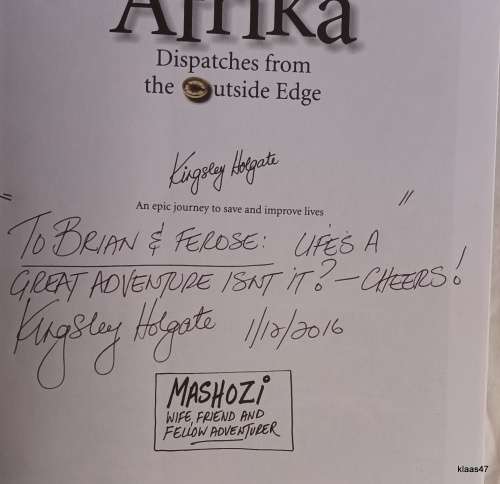 Afrika
Dispatches from
the Outside Edge
Kingsley Holgate
An epic journey to save and improve lives
" TO BRIAN & FEROSE: LIFE'S A "
GREAT ADVENTURE ISNT IT? — CHEERS!
Kingsley Holgate 1/12/2016
MASHOZi
WIFE, FRIEND AND
FELLOW ADVENTURER
klaas47